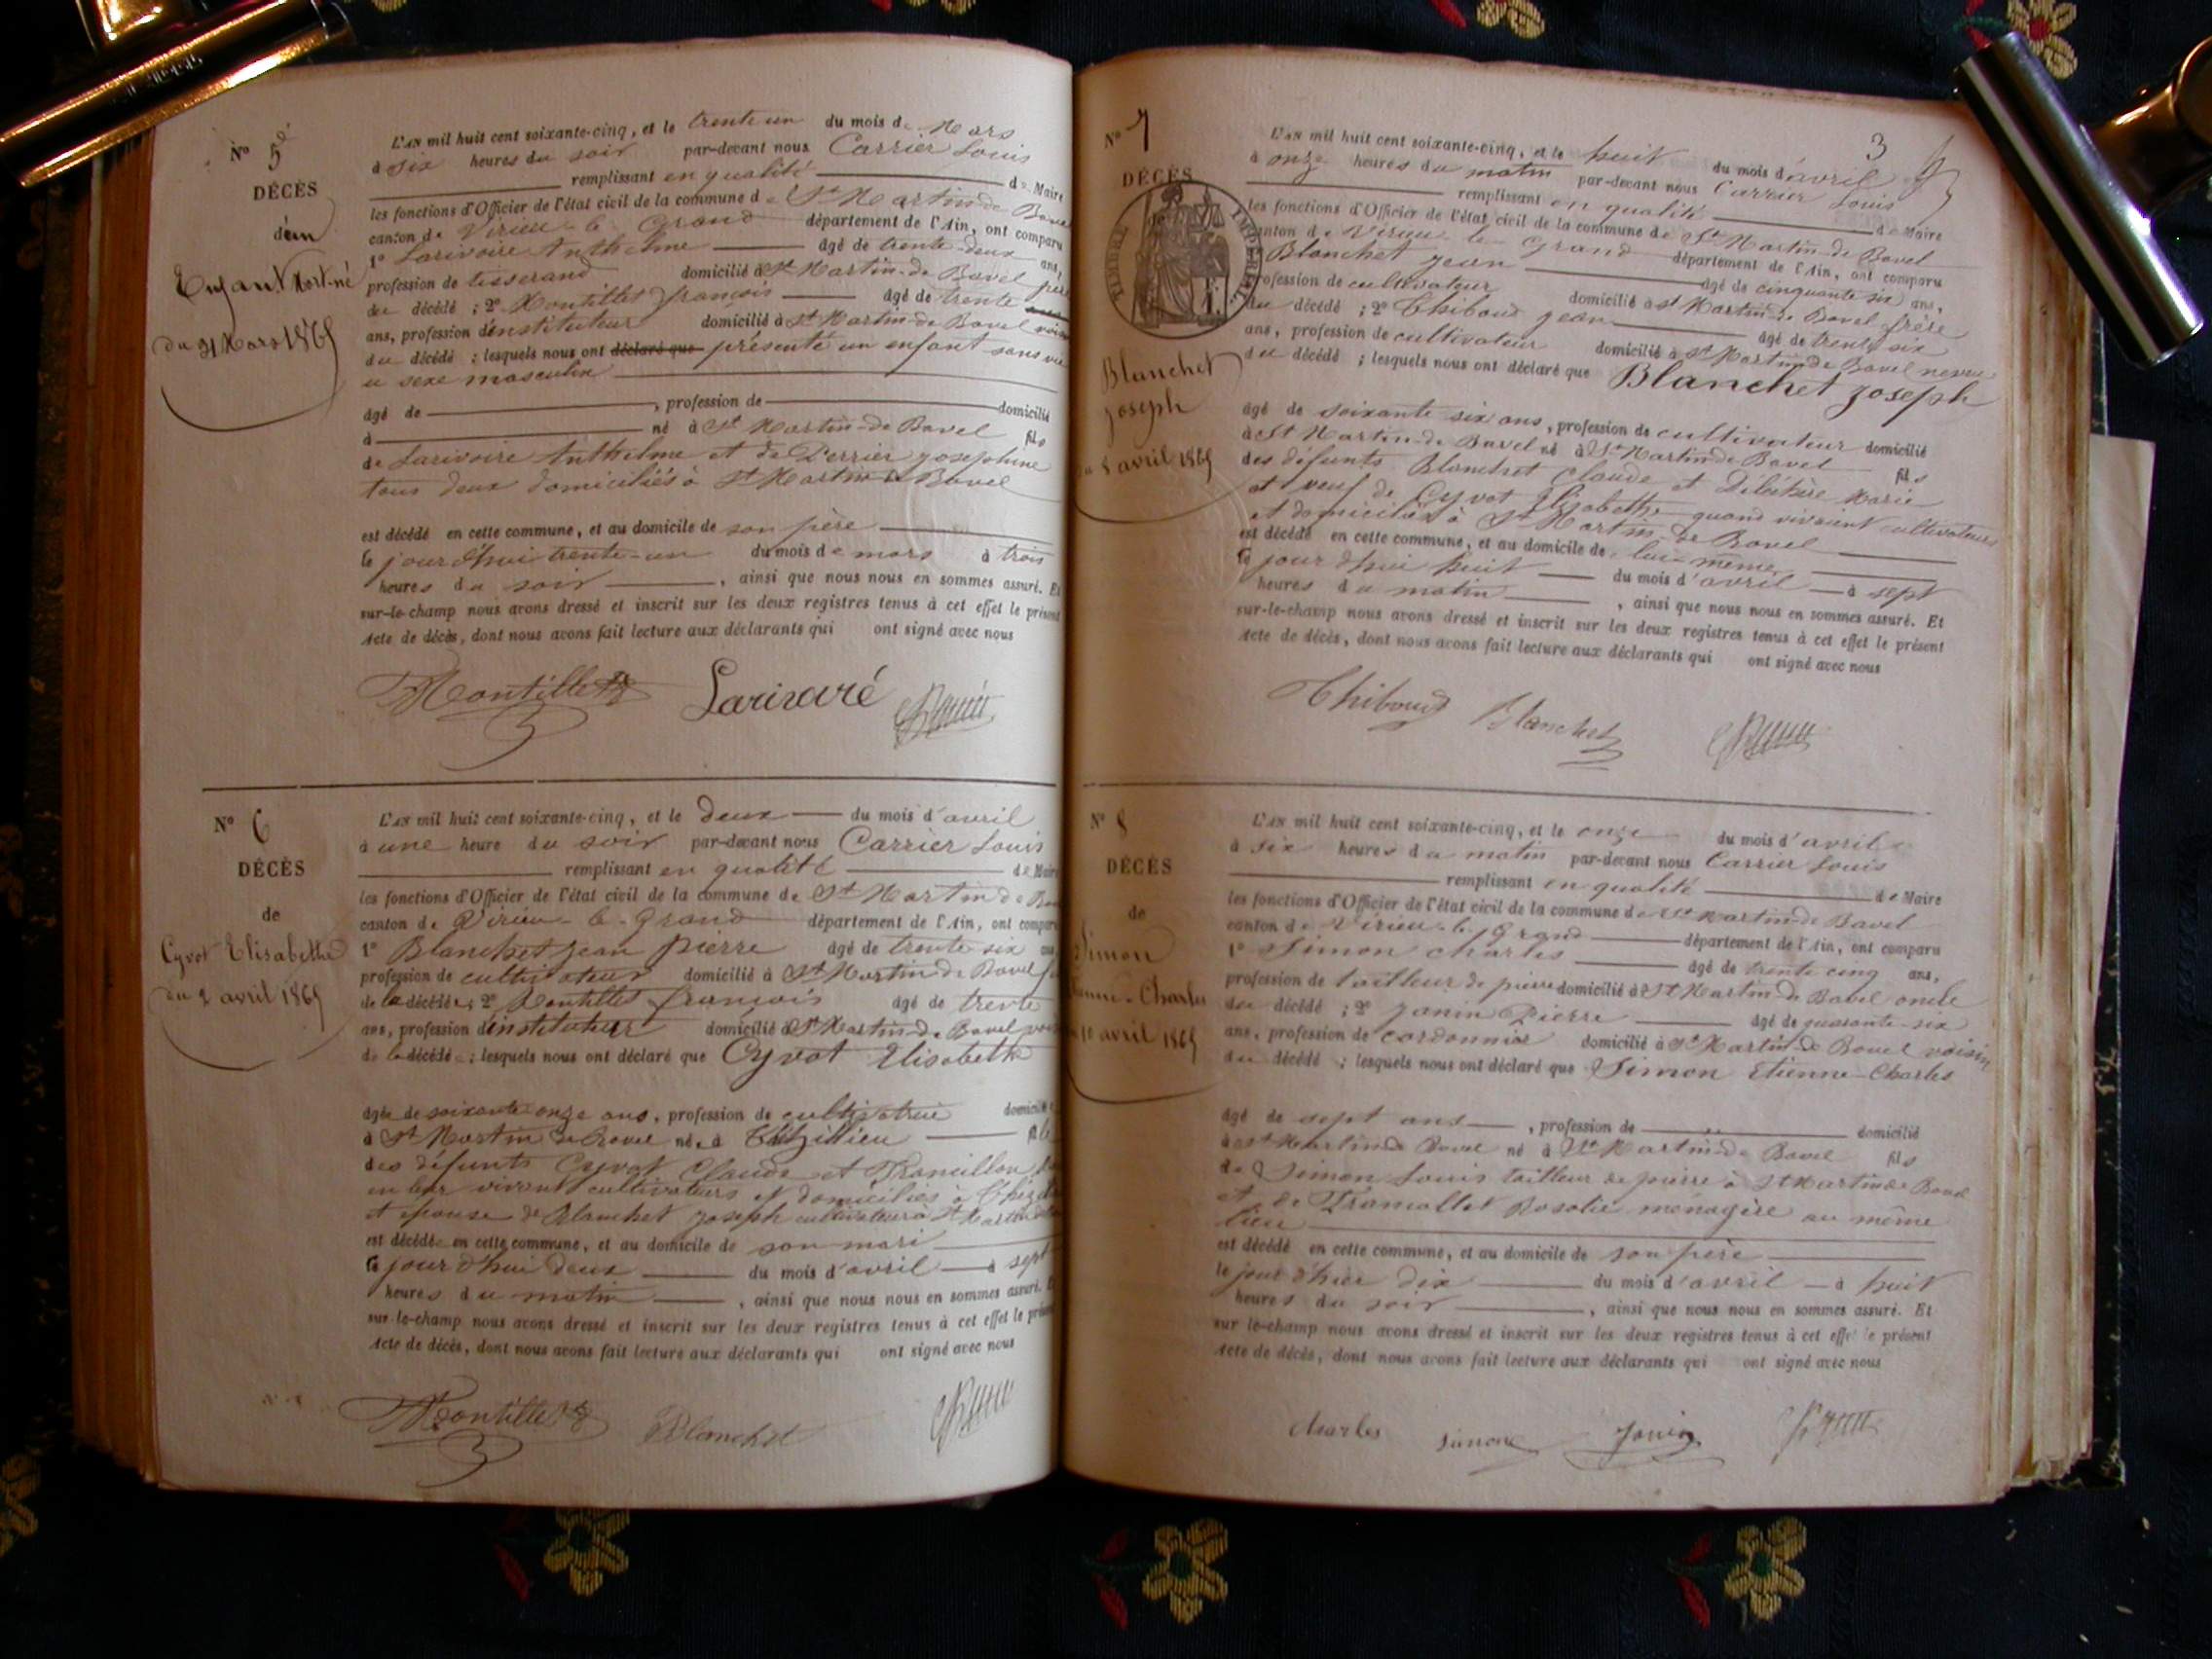 N° 5
DÉCÈS
d'un
Enfant Mort-né
du 31 Mars 1865
L'AN mil huit cent soixante-cinq, et le trente un du mois de Mars
à six heures du soir par-devant nous Carrier Louis
remplissant en qualité de Maire
les fonctions d'Officier de l'état civil de la commune de St Martin de Bavel
canton de Virieu-le-Grand département de l'Ain, ont comparu
1° Larivoire Anthelme âgé de trente-deux ans,
profession de tisserand domicilié à St Martin-de Bavel père
du décédé ; 2° Montillet françois âgé de trente
ans, profession d'instituteur domicilié à St Martin-de Bavel voisin
du décédé ; lesquels nous ont déclaré que présenté un enfant sans vie
du sexe masculin
âgé de , profession de domicilié
à né à St Martin-de Bavel fils
de Larivoire Anthelme et de Perrier Josephine
tous deux domiciliés à St Martin de Bavel
est décédé en cette commune, et au domicile de son père
le jourd'hui trente-un du mois de mars à trois
heures du soir , ainsi que nous nous en sommes assuré. Et
sur-le-champ nous avons dressé et inscrit sur les deux registres tenus à cet effet le présent
Acte de décès, dont nous avons fait lecture aux déclarants qui ont signé avec nous
Montillet Larivoiré
N° 6
DÉCÈS
de
Cyvot Elisabethe
du 2 avril 1865
L'AN mil huit cent soixante-cinq, et le deux du mois d'avril
à une heure du soir par-devant nous Carrier Louis
remplissant en qualité de Maire
les fonctions d'Officier de l'état civil de la commune de St Martin de
canton de Virieu-le-Grand département de l'Ain, ont comparu
1° Blanchet Jean Pierre âgé de trente six ans
profession de cultivateur domicilié à St Martin-de Bavel
de la décédée ; 2° Montillet françois âgé de trente
ans, profession d'instituteur domicilié à St Martin-de Bavel
de la décédée ; lesquels nous ont déclaré que Cyvot Elisabethe
âgée de soixante onze ans, profession de cultivatrice domiciliée
à St Martin de Bavel née à
des défunts Cyvot Claude et
en leur vivant cultivateurs et domiciliés à
et épouse de Blanchet Joseph cultivateur à St Martin de
est décédée en cette commune, et au domicile de son mari
le jourd'hui deux du mois d'avril à sept
heures du matin , ainsi que nous nous en sommes assuré. Et
sur-le-champ nous avons dressé et inscrit sur les deux registres tenus à cet effet le présent
Acte de décès, dont nous avons fait lecture aux déclarants qui ont signé avec nous
Montillet Blanchet
N° 7
3
DÉCÈS
TIMBRE IMPÉRIAL
Blanchet
Joseph
du 8 avril 1865
L'AN mil huit cent soixante-cinq, et le huit du mois d'avril
à onze heures du matin par-devant nous Carrier Louis
remplissant en qualité de Maire
les fonctions d'Officier de l'état civil de la commune de St Martin-de Bavel
canton de Virieu-le-Grand département de l'Ain, ont comparu
Blanchet Jean âgé de cinquante six ans,
profession de cultivateur domicilié à St Martin de Bavel frère
du décédé ; 2° Thiboud Jean âgé de trente six
ans, profession de cultivateur domicilié à St Martin de Bavel neveu
du décédé ; lesquels nous ont déclaré que Blanchet Joseph
âgé de soixante six ans, profession de cultivateur domicilié
à St Martin-de Bavel né à St Martin de Bavel fils
des défunts Blanchet Claude et Marie
et veuf de Cyvot Elisabethe quand vivaient cultivateurs
et domiciliés à St Martin de Bavel
est décédé en cette commune, et au domicile de lui-même
le jourd'hui huit du mois d'avril à sept
heures du matin , ainsi que nous nous en sommes assuré. Et
sur-le-champ nous avons dressé et inscrit sur les deux registres tenus à cet effet le présent
Acte de décès, dont nous avons fait lecture aux déclarants qui ont signé avec nous
Thiboud Blanchet
N° 8
DÉCÈS
de
Simon
Etienne-Charles
du 10 avril 1865
L'AN mil huit cent soixante-cinq, et le onze du mois d'avril
à six heures du matin par-devant nous Carrier Louis
remplissant en qualité de Maire
les fonctions d'Officier de l'état civil de la commune de St Martin de Bavel
canton de Virieu-le-Grand département de l'Ain, ont comparu
1° Simon Charles âgé de trente cinq ans,
profession de tailleur de pierre domicilié à St Martin de Bavel oncle
du décédé ; 2° Janin Pierre âgé de quarante-six
ans, profession de cordonnier domicilié à St Martin de Bavel voisin
du décédé ; lesquels nous ont déclaré que Simon Etienne-Charles
âgé de sept ans , profession de domicilié
à St Martin de Bavel né à St Martin-de Bavel fils
de Simon Louis tailleur de pierre à St Martin de Bavel
et de Tramollet Rosalie ménagère au même
lieu
est décédé en cette commune, et au domicile de son père
le jour d'hier dix du mois d'avril à huit
heures du soir , ainsi que nous nous en sommes assuré. Et
sur-le-champ nous avons dressé et inscrit sur les deux registres tenus à cet effet le présent
Acte de décès, dont nous avons fait lecture aux déclarants qui ont signé avec nous
Charles Simon Janin